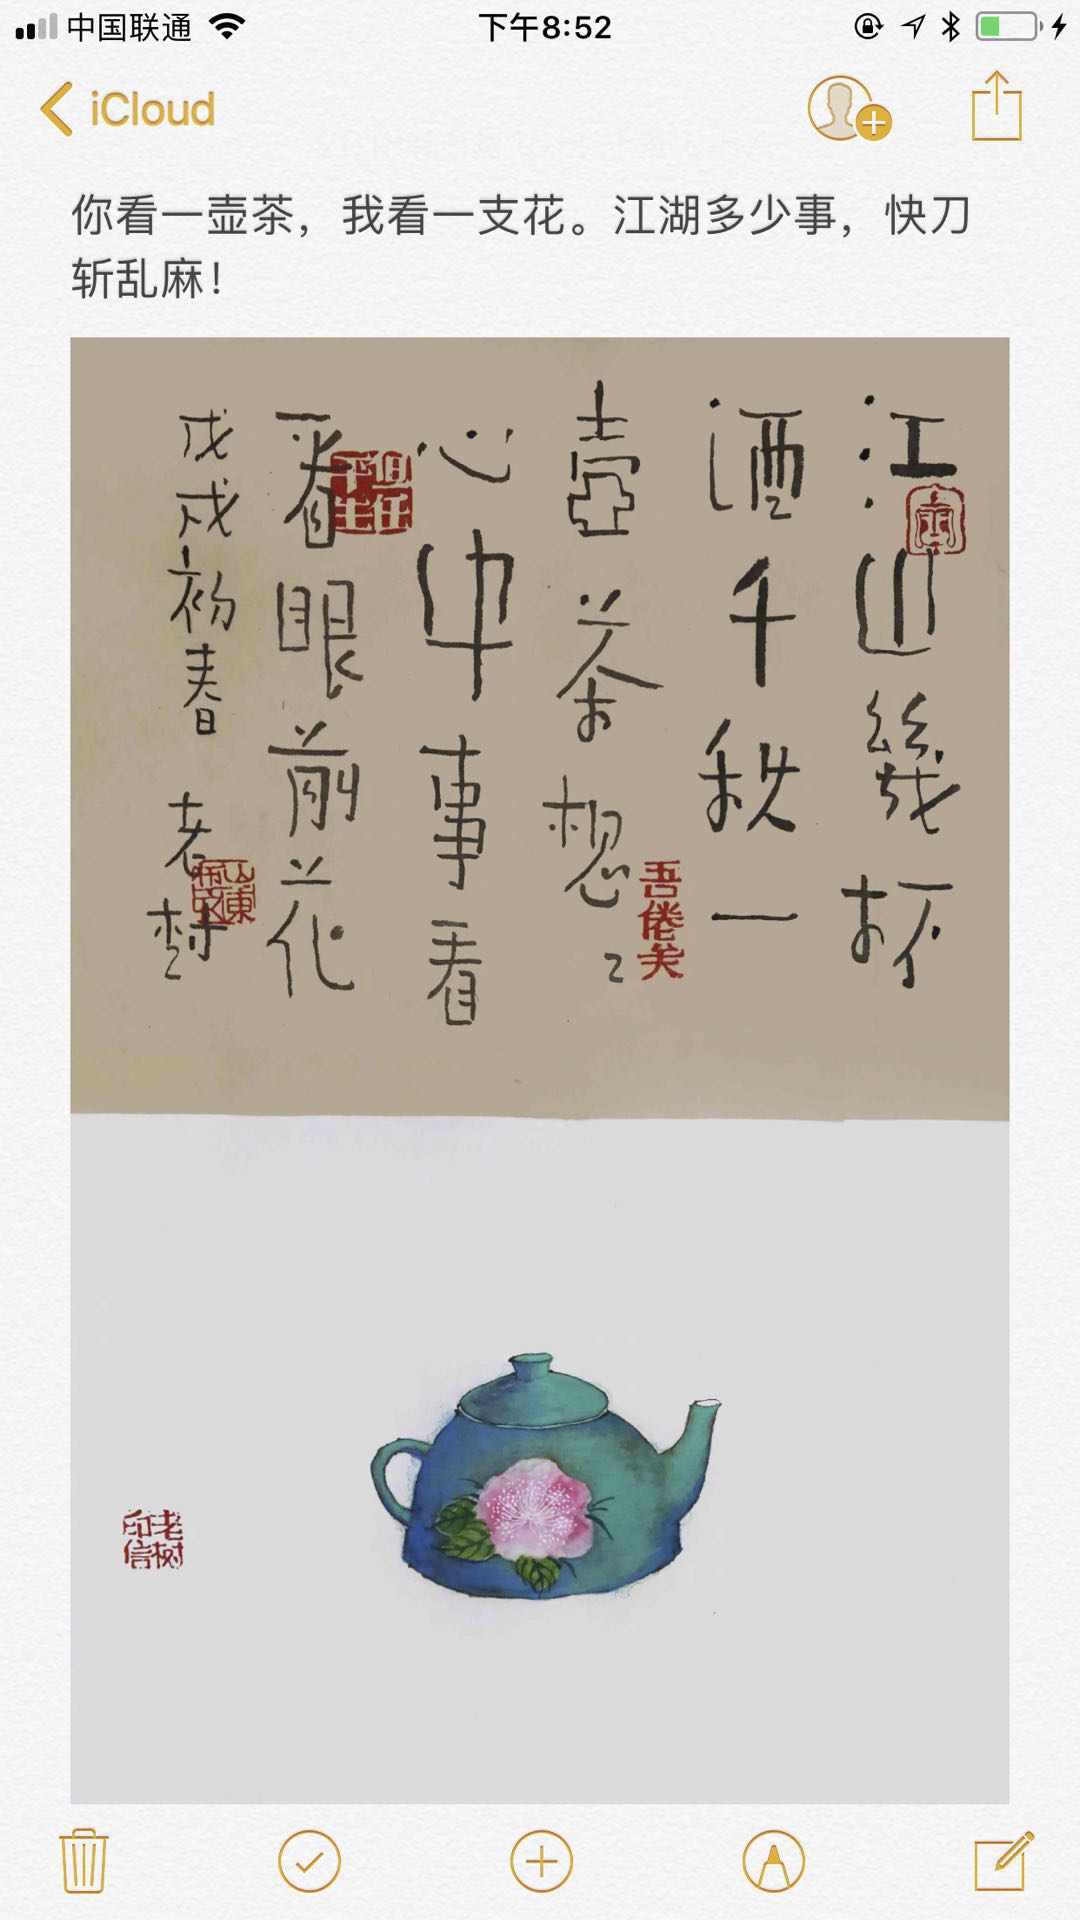 中国联通
下午8:52
iCloud
你看一壶茶，我看一支花。江湖多少事，快刀
斩乱麻！
江山幾杯
酒千秋一
壺茶想〻
心中事看
看眼前花
戊戌初春 老樹
吾倦矣
老树印信